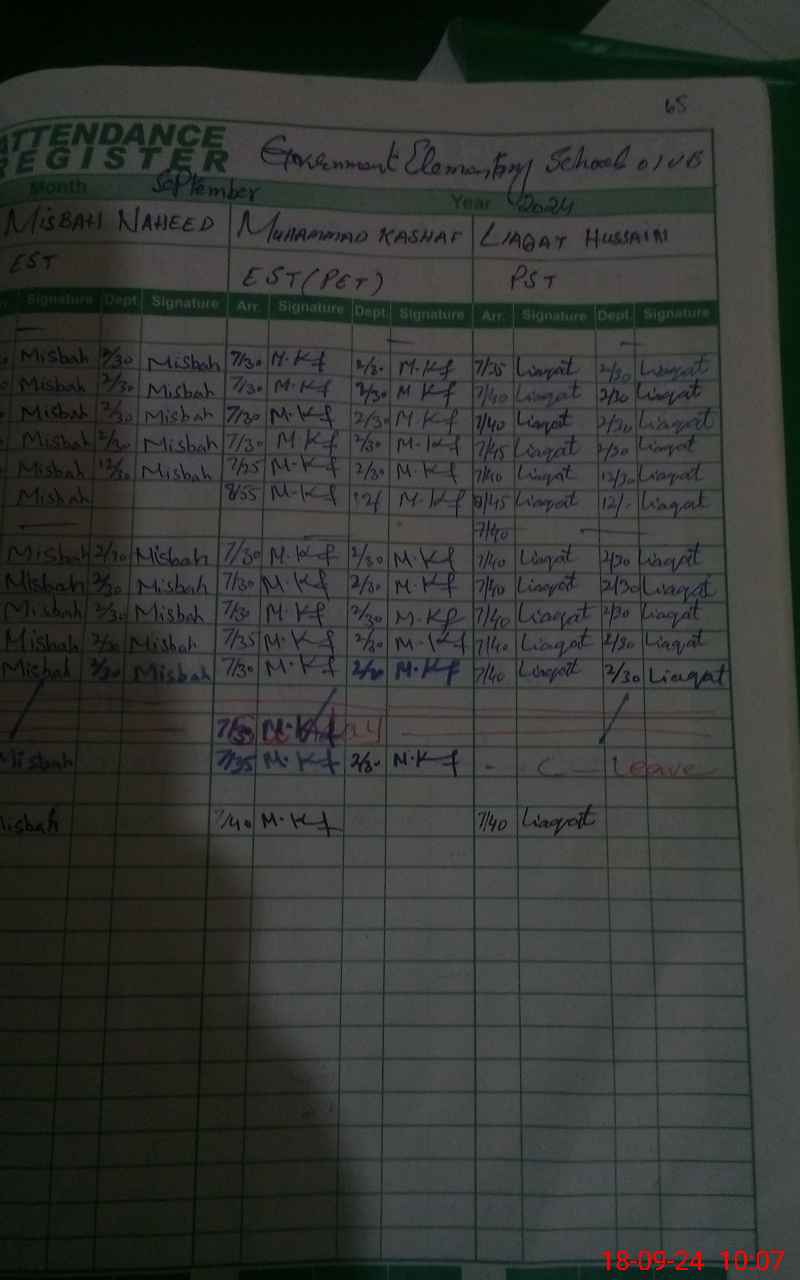 65
ATTENDANCE
REGISTER
Government Elementary School
Month September Year 2024
MISBAH NAHEED MUHAMMAD KASHAF LIAQAT HUSSAIN
EST EST (PET) PST
Signature Dept Signature Arr. Signature Dept. Signature Arr. Signature Dept. Signature
Misbah 2/30 Misbah 7/30 M.Kf 2/30 M.Kf 7/35 Liaqat 2/30 Liaqat
Misbah 2/30 Misbah 7/30 M.Kf 2/30 M Kf 7/40 Liaqat 2/30 Liaqat
Misbah 2/30 Misbah 7/30 M.Kf 2/30 M.Kf 7/40 Liaqat 2/30 Liaqat
Misbah 2/30 Misbah 7/30 M.Kf 2/30 M.Kf 7/45 Liaqat 2/30 Liaqat
Misbah 12/30 Misbah 7/25 M.Kf 2/30 M.Kf 7/40 Liaqat 12/30 Liaqat
Misbah 8/55 M.Kf 12/ M.Kf 8/45 Liaqat 12/- Liaqat
7/40
Misbah 2/30 Misbah 7/30 M.Kf 2/30 M.Kf 7/40 Liaqat 2/30 Liaqat
Misbah 2/30 Misbah 7/30 M.Kf 2/30 M.Kf 7/40 Liaqat 2/30 Liaqat
Misbah 2/30 Misbah 7/30 M.Kf 2/30 M.Kf 7/40 Liaqat 2/30 Liaqat
Misbah 2/30 Misbah 7/35 M.Kf 2/30 M.Kf 7/40 Liaqat 2/30 Liaqat
Misbah 2/30 Misbah 7/30 M.Kf 2/30 M.Kf 7/40 Liaqat 2/30 Liaqat
M.Kf
Misbah 7/35 M.Kf 2/30 M.Kf - C - Leave
Misbah 7/40 M.Kf 7/40 Liaqat
18-09-24 10:07